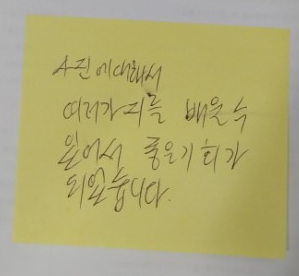 사진에대해서
여러가지를 배울수
있어서 좋은기회가
되었습니다.